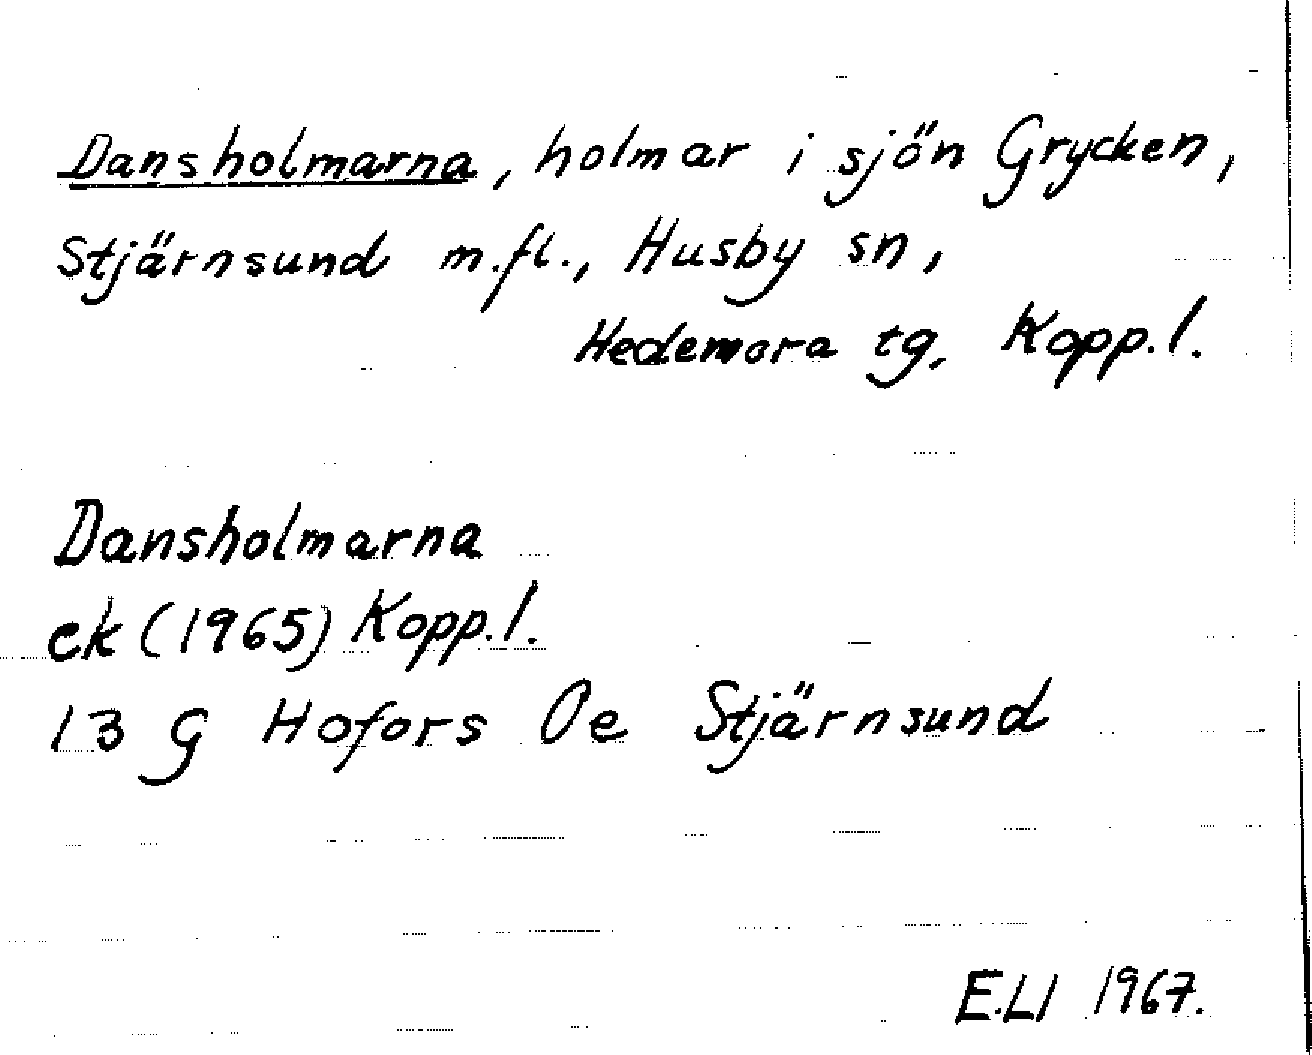 Dansholmarna, holmar i sjön Grycken,
Stjärnsund m.fl., Husby sn,
Hedemora tg, Kopp.l.
Dansholmarna
ek (1965) Kopp.l.
13 G Hofors Oe Stjärnsund
E.Ll 1967.